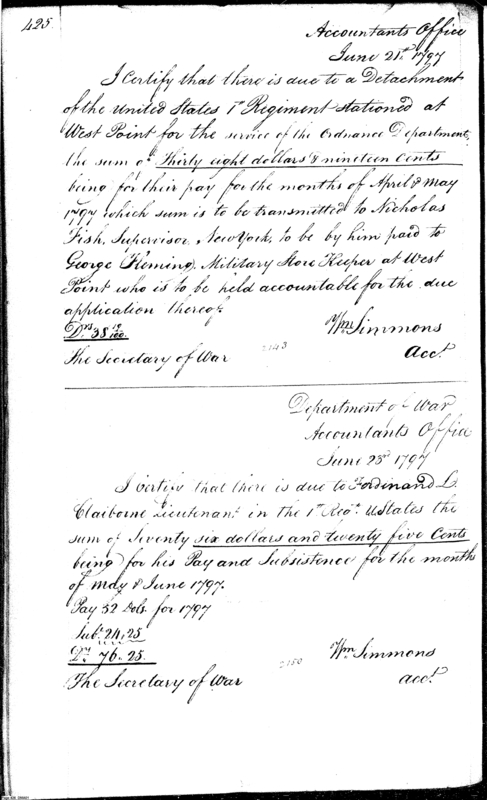 425
Accountants Office
June 21st 1797
I Certify that there is due to a Detachment
of the United States 1st Regiment stationed at
West Point for the service of the Ordnance Department,
the sum of Thirty eight dollars & nineteen Cents
being for their pay for the months of April & May
1797 which sum is to be transmitted to Nicholas
Fish, Supervisor, New York, to be by him paid to
George Fleming, Military Store Keeper at West
Point who is to be held accountable for the due
application thereof.
Drs 38 19/100
Wm Simmons
2143
The Secretary of War
Acct.
Department of War
Accountants Office
June 23rd 1797
I Certify that there is due to Ferdinand L.
Claiborne Lieutenant in the 1st Regt. U States the
sum of Seventy six dollars and twenty five Cents
being for his Pay and Subsistence for the months
of May & June 1797.
Pay 52 Dols. for 1797
Subs. 24.25
Ds. 76.25.
Wm Simmons
2150
The Secretary of War
acct.